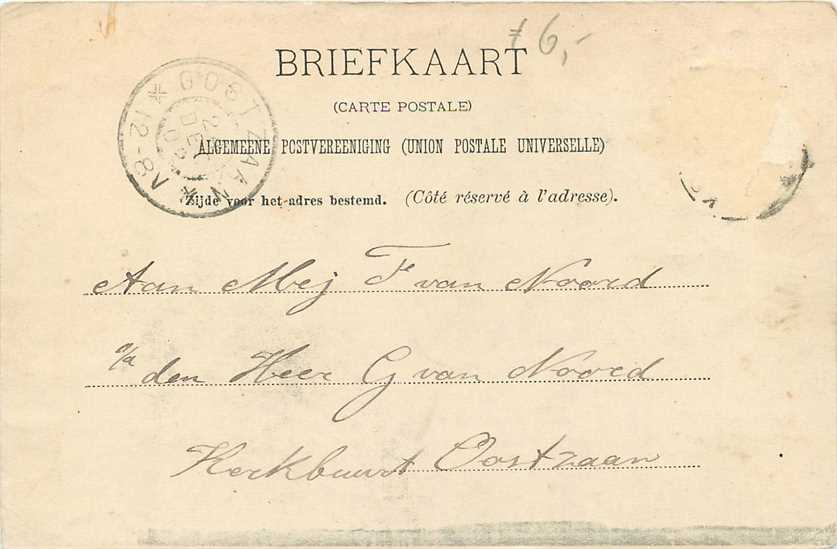 f 6,-
BRIEFKAART
(CARTE POSTALE)
ALGEMEENE POSTVEREENIGING (UNION POSTALE UNIVERSELLE)
Zijde voor het adres bestemd. (Côté réservé à l'adresse).
OOSTZAAN
12-8V
2
DEC
Aan Mej F van Noord
a/a den Heer G van Noord
Kerkbuurt Oostzaan